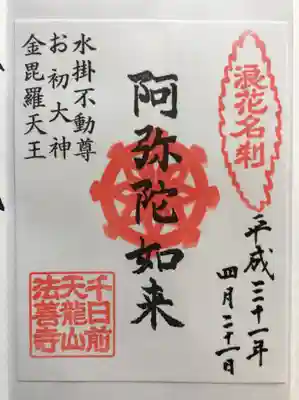 浪花名刹
平成三十一年
四月二十一日
阿弥陀如来
水掛不動尊
お初大神
金毘羅天王
千日前
天龍山
法善寺